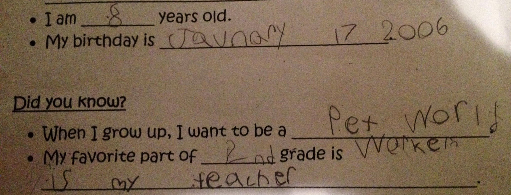 • I am 8 years old.
• My birthday is January 17 2006
Did you know?
• When I grow up, I want to be a Pet World
Worker
• My favorite part of 2nd grade is
is my teacher.